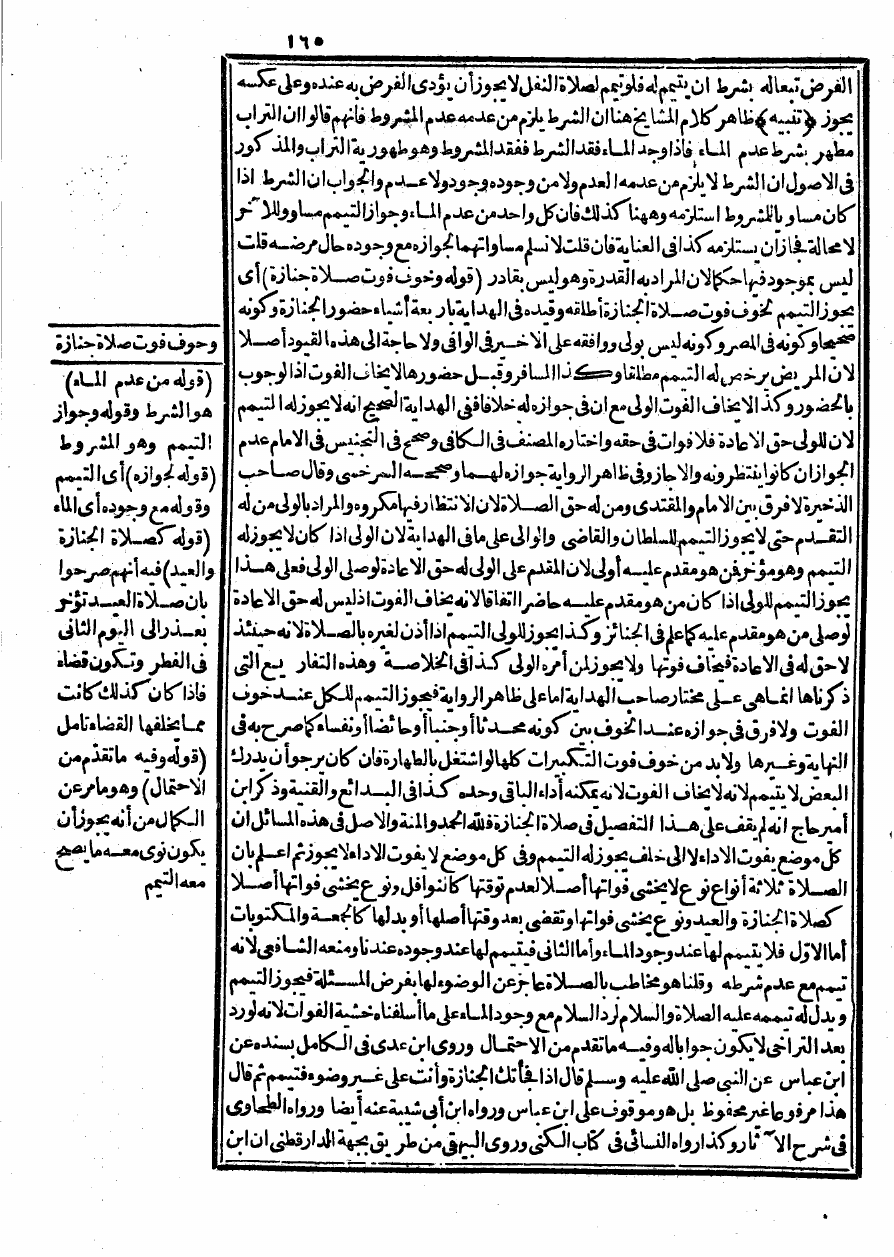 ١٦٥
الفرض تبعا له بشرط ان يتيمم له فلو تيمم لصلاة النفل لا يجوز أن يؤدى الفرض به عنده وعلى عكسه
يجوز ﴿تنبيه﴾ ظاهر كلام المشايخ هنا ان الشرط يلزم من عدمه عدم المشروط فانهم قالوا ان التراب
مطهر بشرط عدم الماء فاذا وجد الماء فقد الشرط ففقد المشروط وهو طهورية التراب والمذكور
فى الاصول ان الشرط لا يلزم من عدمه العدم ولا من وجوده وجود ولا عدم والجواب ان الشرط اذا
كان مساويا للمشروط استلزمه وههنا كذلك فان كل واحد من عدم الماء وجواز التيمم مساو للآخر
لا محالة فجاز ان يستلزمه كذا فى العناية فان قلت لا نسلم مساواتهما لجوازه مع وجوده حال مرضه قلت
ليس بموجود فيها حكما لان المراد به القدرة وهو ليس بقادر (قوله وخوف فوت صلاة جنازة) أى
يجوز التيمم لخوف فوت صلاة الجنازة أطلقه وقيده فى الهداية باربعة أشياء حضور الجنازة وكونه
صحيحا وكونه فى المصر وكونه ليس بولى ووافقه على الاخير فى الوافى ولا حاجة الى هذه القيود أصلا
لان المريض يرخص له التيمم مطلقا وكذا المسافر وقبل حضورها لا يخاف الفوت اذ الوجوب
بالحضور وكذا لا يخاف الفوت الولى مع ان فى جوازه له خلافا ففى الهداية الصحيح انه لا يجوز له التيمم
لان للولى حق الاعادة فلا فوات فى حقه واختاره المصنف فى الكافى وصحح فى التجنيس فى الامام عدم
الجواز ان كانوا ينتظرونه والا جاز وفى ظاهر الرواية جوازه لهما وصححه السرخسى وقال صاحب
الذخيرة لا فرق بين الامام والمقتدى ومن له حق الصلاة لان الانتظار فيها مكروه والمراد بالولى من له
التقدم حتى لا يجوز التيمم للسلطان والقاضى والوالى على ما فى الهداية لان الولى اذا كان لا يجوز له
التيمم وهو مؤخر فمن هو مقدم عليه أولى لان المقدم على الولى له حق الاعادة لو صلى الولى فعلى هذا
يجوز التيمم للولى اذا كان من هو مقدم عليه حاضرا اتفاقا لانه يخاف الفوت اذ ليس له حق الاعادة
لو صلى من هو مقدم عليه كما علم فى الجنائز وكذا يجوز للولى التيمم اذا أذن لغيره بالصلاة لانه حينئذ
لا حق له فى الاعادة فيخاف فوتها ولا يجوز لمن أمره الولى كذا فى الخلاصة وهذه التفاريع التى
ذكرناها انما هى على مختار صاحب الهداية اما على ظاهر الرواية فيجوز التيمم للكل عند خوف
الفوت ولا فرق فى جوازه عند الخوف بين كونه محدثا أو جنبا أو حائضا أو نفساء كما صرح به فى
النهاية وغيرها ولا بد من خوف فوت التكبيرات كلها لو اشتغل بالطهارة فان كان يرجو أن يدرك
البعض لا يتيمم لانه لا يخاف الفوت لانه يمكنه أداء الباقى وحده كذا فى البدائع والقنية وذكر ابن
أمير حاج انه لم يقف على هذا التفصيل فى صلاة الجنازة فلله الحمد والمنة والاصل فى هذه المسائل ان
كل موضع يفوت الاداء لا الى خلف يجوز له التيمم وفى كل موضع لا يفوت الاداء لا يجوز ثم اعلم بان
الصلاة ثلاثة أنواع نوع لا يخشى فواتها أصلا لعدم توقتها كالنوافل ونوع يخشى فواتها أصلا
كصلاة الجنازة والعيد ونوع يخشى فواتها وتقضى بعد وقتها أصلها أو بدلها كالجمعة والمكتوبات
أما الاوّل فلا يتيمم لها عند وجود الماء وأما الثانى فيتيمم لها عند وجوده عندنا ومنعه الشافعى لانه
تيمم مع عدم شرطه وقلنا هو مخاطب بالصلاة عاجز عن الوضوء لها بفرض المسئلة فيجوز التيمم
ويدل له تيممه عليه الصلاة والسلام لرد السلام مع وجود الماء على ما أسلفناه خشية الفوات لانه لو رد
بعد التراخى لا يكون جوابا له وفيه ما تقدم من الاحتمال وروى ابن عدى فى الكامل بسنده عن
ابن عباس عن النبى صلى الله عليه وسلم قال اذا فجأتك الجنازة وأنت على غير وضوء فتيمم ثم قال
هذا مرفوعا غير محفوظ بل هو موقوف على ابن عباس ورواه ابن أبى شيبة عنه أيضا ورواه الطحاوى
فى شرح الآثار وكذا رواه النسائى فى كتاب الكنى وروى البيهقى من طريق بجهة الدارقطنى ان ابن
وخوف فوت صلاة جنازة
(قوله من عدم الماء)
هو الشرط وقوله وجواز
التيمم وهو المشروط
(قوله لجوازه) أى التيمم
وقوله مع وجوده أى الماء
(قوله كصلاة الجنازة
والعيد) فيه أنهم صرحوا
بان صلاة العيد تؤخر
بعذر الى اليوم الثانى
فى الفطر وتكون قضاء
فاذا كان كذلك كانت
مما يخلفها القضاء تأمل
(قوله وفيه ما تقدّم من
الاحتمال) وهو ما مر عن
الكمال من أنه يجوز أن
يكون نوى معه ما يصح
معه التيمم